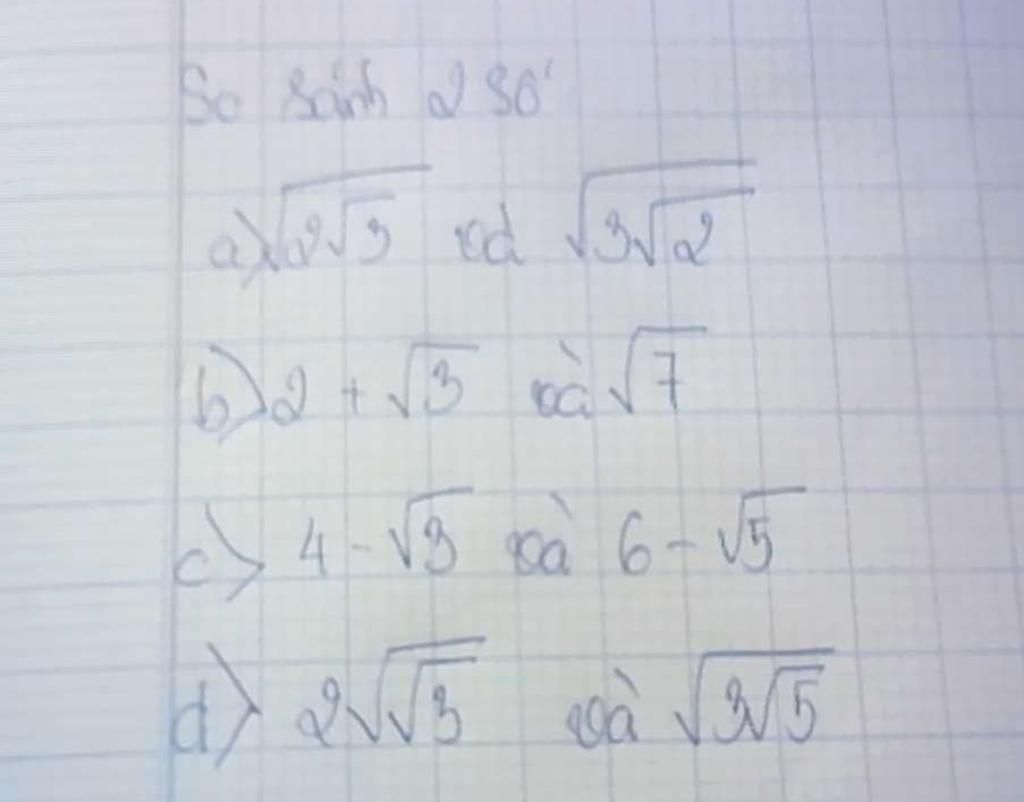 So sánh 2 số
a) √(2√3) và √(3√2)
b) 2 + √3 và √7
c) 4 - √3 và 6 - √5
d) 2√(√3) và √(3√5)